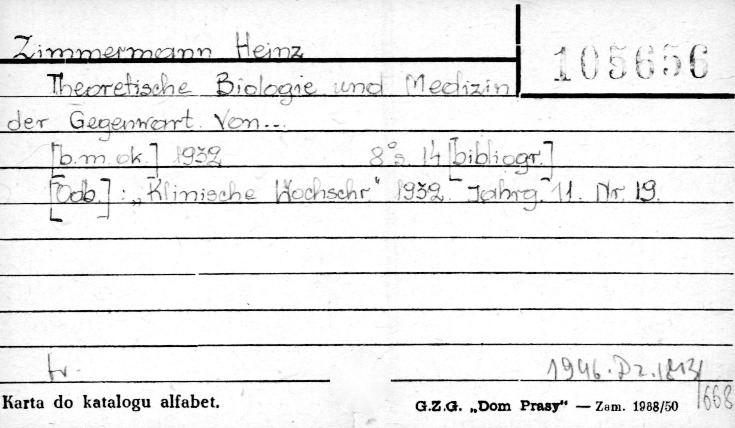 Zimmermann Heinz
105656
Theoretische Biologie und Medizin
der Gegenwart. Von...
[b.m.ok.] 1932 8° s. 14 [bibliogr.]
[Odb.]: „Klinische Wochschr." 1932. Jahrg. 11. Nr. 19.
tr.
1946. Dz. 1813/
/668
Karta do katalogu alfabet.
G.Z.G. „Dom Prasy" — Zam. 1988/50